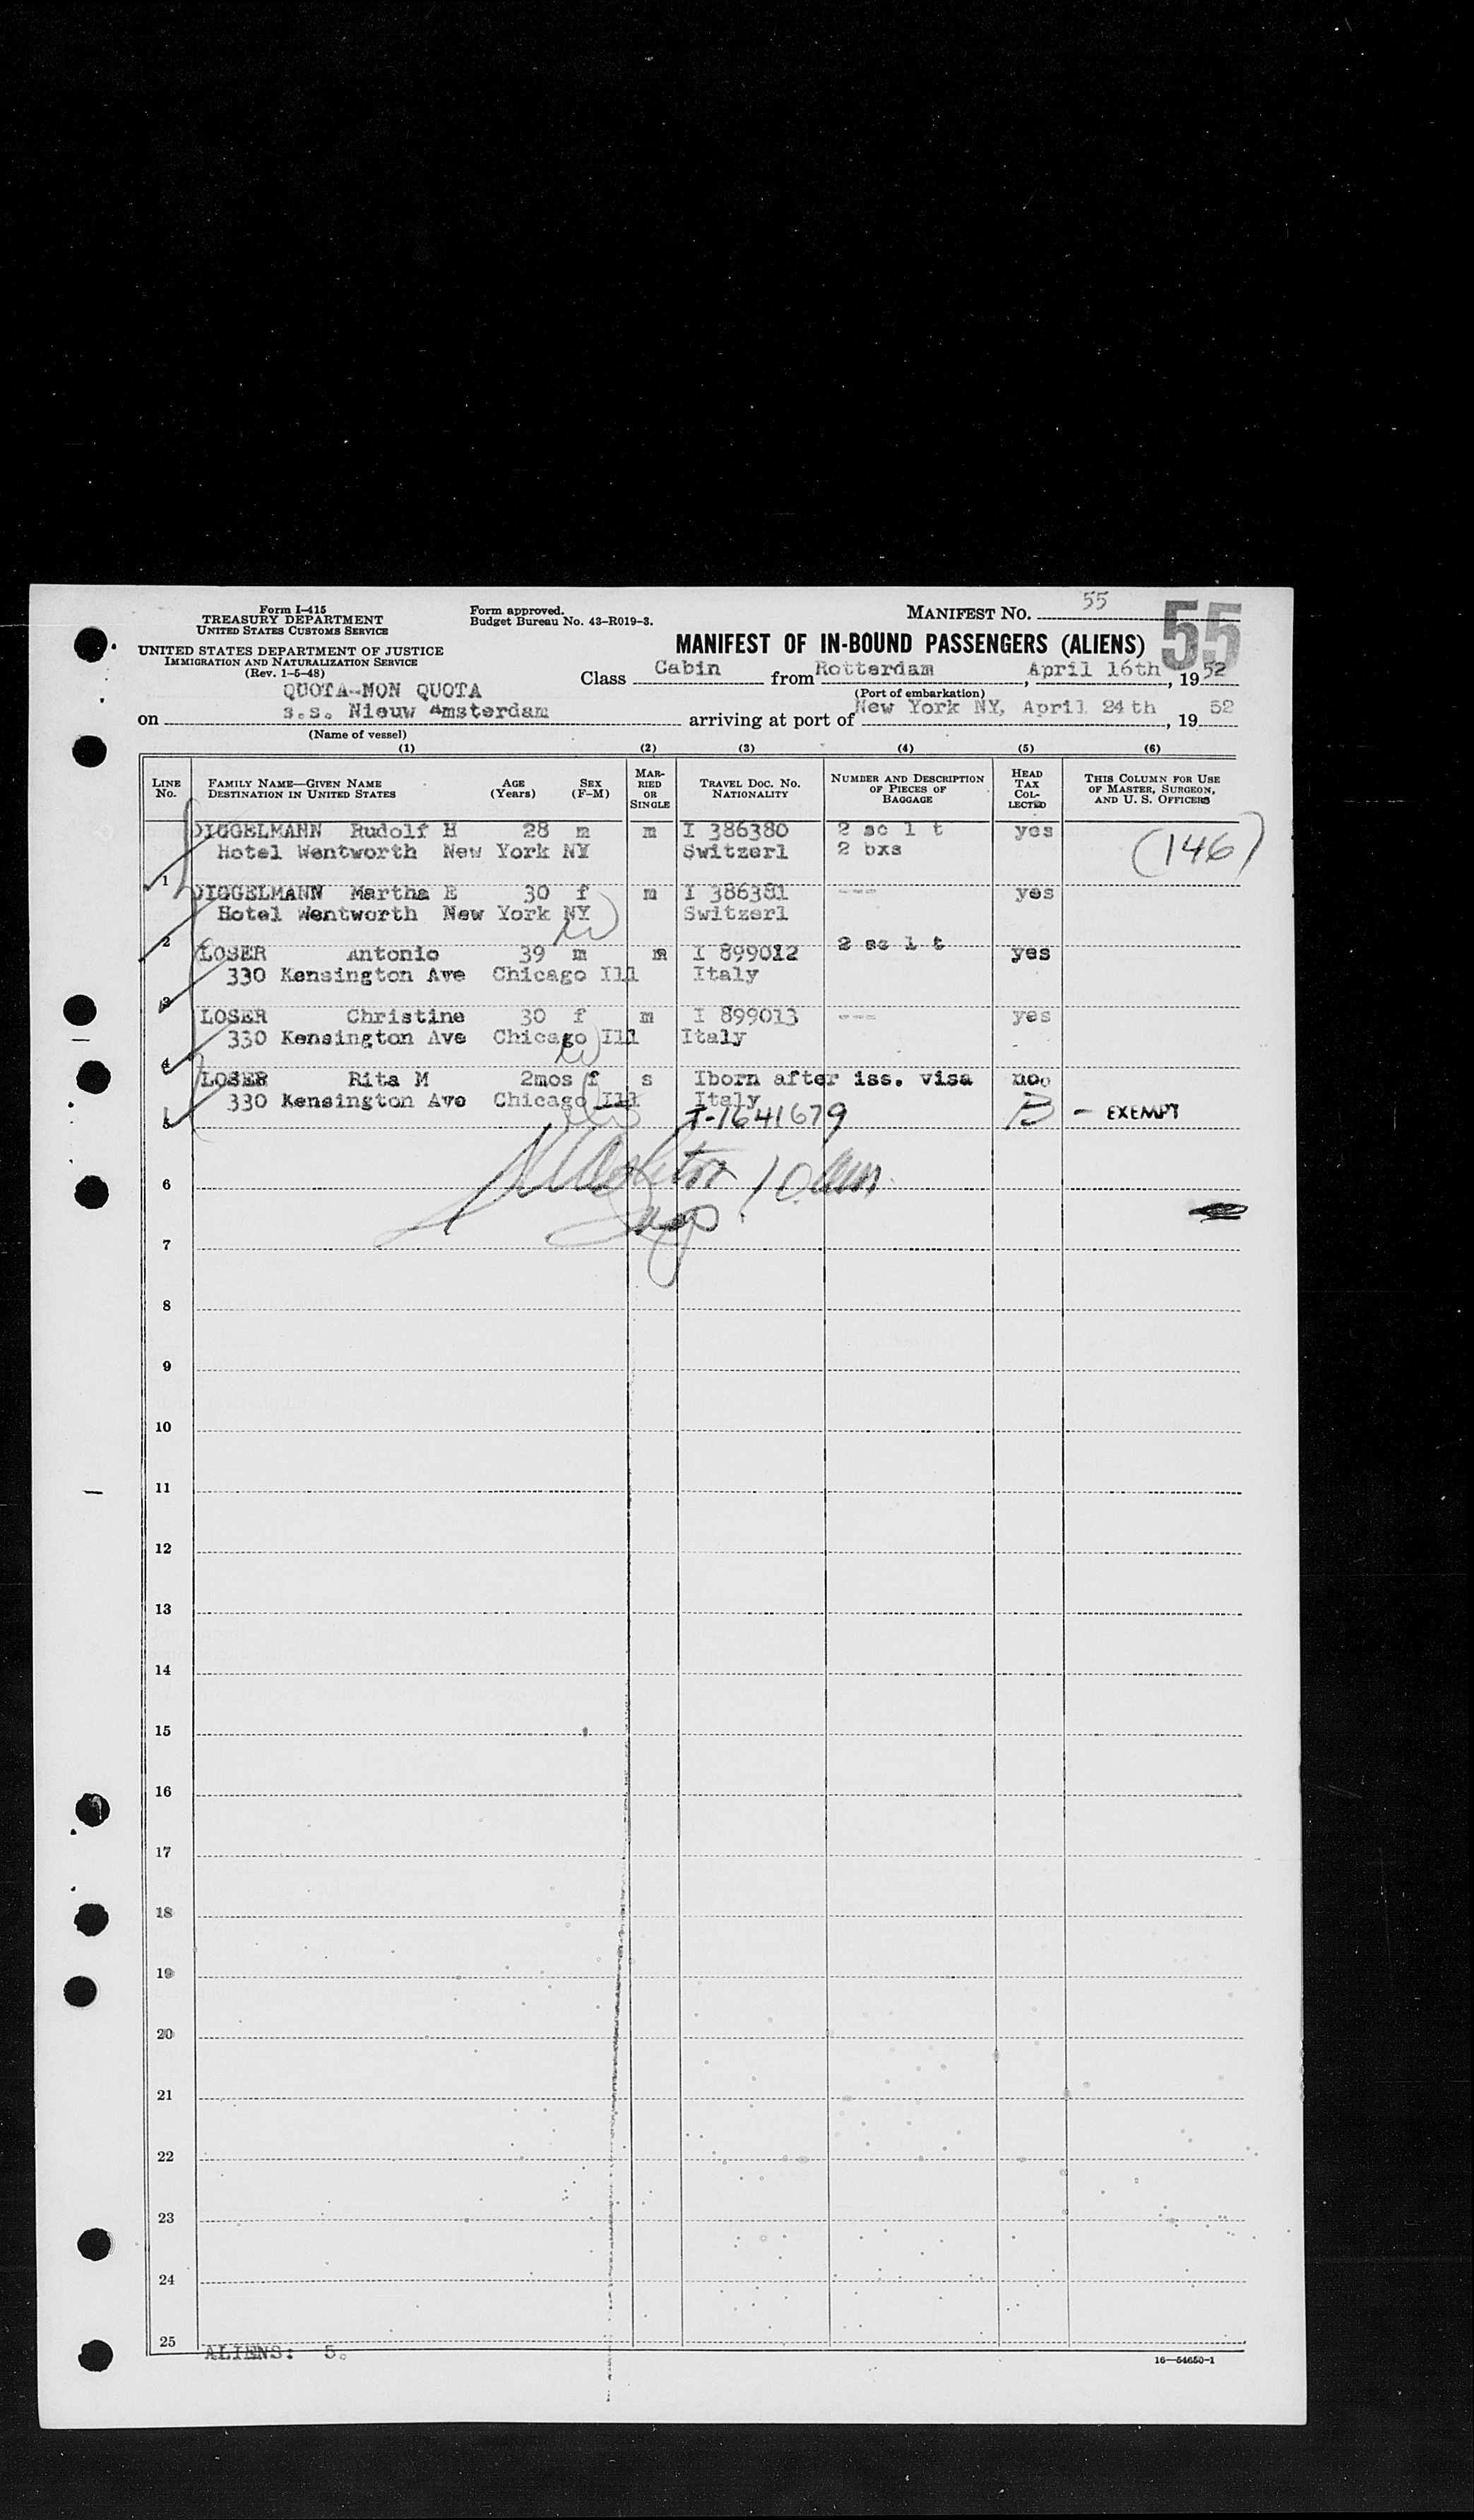 Form I-415
TREASURY DEPARTMENT
UNITED STATES CUSTOMS SERVICE
UNITED STATES DEPARTMENT OF JUSTICE
IMMIGRATION AND NATURALIZATION SERVICE
(Rev. 1-5-48)
Form approved.
Budget Bureau No. 43-R019-3.
MANIFEST NO. 55
55
MANIFEST OF IN-BOUND PASSENGERS (ALIENS)
Class Cabin from Rotterdam, April 16th, 1952
(Port of embarkation)
QUOTA-NON QUOTA
on s.s. Nieuw Amsterdam arriving at port of New York NY, April 24th, 19 52
(Name of vessel)
(1) (2) (3) (4) (5) (6)
LINE No. FAMILY NAME—GIVEN NAME DESTINATION IN UNITED STATES AGE (Years) SEX (F-M) MARRIED OR SINGLE TRAVEL DOC. NO. NATIONALITY NUMBER AND DESCRIPTION OF PIECES OF BAGGAGE HEAD TAX COLLECTED THIS COLUMN FOR USE OF MASTER, SURGEON, AND U. S. OFFICERS
DIGGELMANN Rudolf H 28 m m I 386380 2 sc 1 t yes (146)
Hotel Wentworth New York NY Switzerl 2 bxs
1
DIGGELMANN Martha E 30 f m I 386381 --- yes
Hotel Wentworth New York NY Switzerl
2
LOSER Antonio 39 m m I 899012 2 sc 1 t yes
330 Kensington Ave Chicago Ill Italy
3
LOSER Christine 30 f m I 899013 --- yes
330 Kensington Ave Chicago Ill Italy
4
LOSER Rita M 2mos f s Iborn after iss. visa no.
330 Kensington Ave Chicago Ill Italy
5 T-1641679 B - EXEMPT
6
7
8
9
10
11
12
13
14
15
16
17
18
19
20
21
22
23
24
25
ALIENS: 5.
16—54650-1